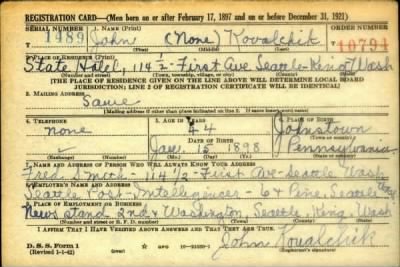 REGISTRATION CARD—(Men born on or after February 17, 1897 and on or before December 31, 1921)
SERIAL NUMBER 1. NAME (Print) ORDER NUMBER
1489 John (None) Kovalchik 10794
(First) (Middle) (Last)
2. PLACE OF RESIDENCE (Print)
State Hotel, 114½ - First Ave Seattle - King Wash
(Number and street) (Town, township, village, or city) (County) (State)
[THE PLACE OF RESIDENCE GIVEN ON THE LINE ABOVE WILL DETERMINE LOCAL BOARD
JURISDICTION; LINE 2 OF REGISTRATION CERTIFICATE WILL BE IDENTICAL]
3. MAILING ADDRESS
Same
[Mailing address if other than place indicated on line 2. If same insert word same]
4. TELEPHONE 5. AGE IN YEARS 6. PLACE OF BIRTH
none 44 Johnstown
DATE OF BIRTH
Jan. 15 1898 Pennsylvania
(Mo.) (Day) (Yr.)
7. NAME AND ADDRESS OF PERSON WHO WILL ALWAYS KNOW YOUR ADDRESS
Fred Smith - 114½ - First Ave - Seattle Wash
8. EMPLOYER'S NAME AND ADDRESS
Seattle Post-Intelligencer - 6 & Pine, Seattle
9. PLACE OF EMPLOYMENT OR BUSINESS
News stand 2nd & Washington, Seattle, King Wash
(Number and street or R. F. D. number) (Town) (County) (State)
I AFFIRM THAT I HAVE VERIFIED ABOVE ANSWERS AND THAT THEY ARE TRUE.
D. S. S. Form 1
(Revised 1-1-42) GPO John Kovalchik
(Registrant's signature)